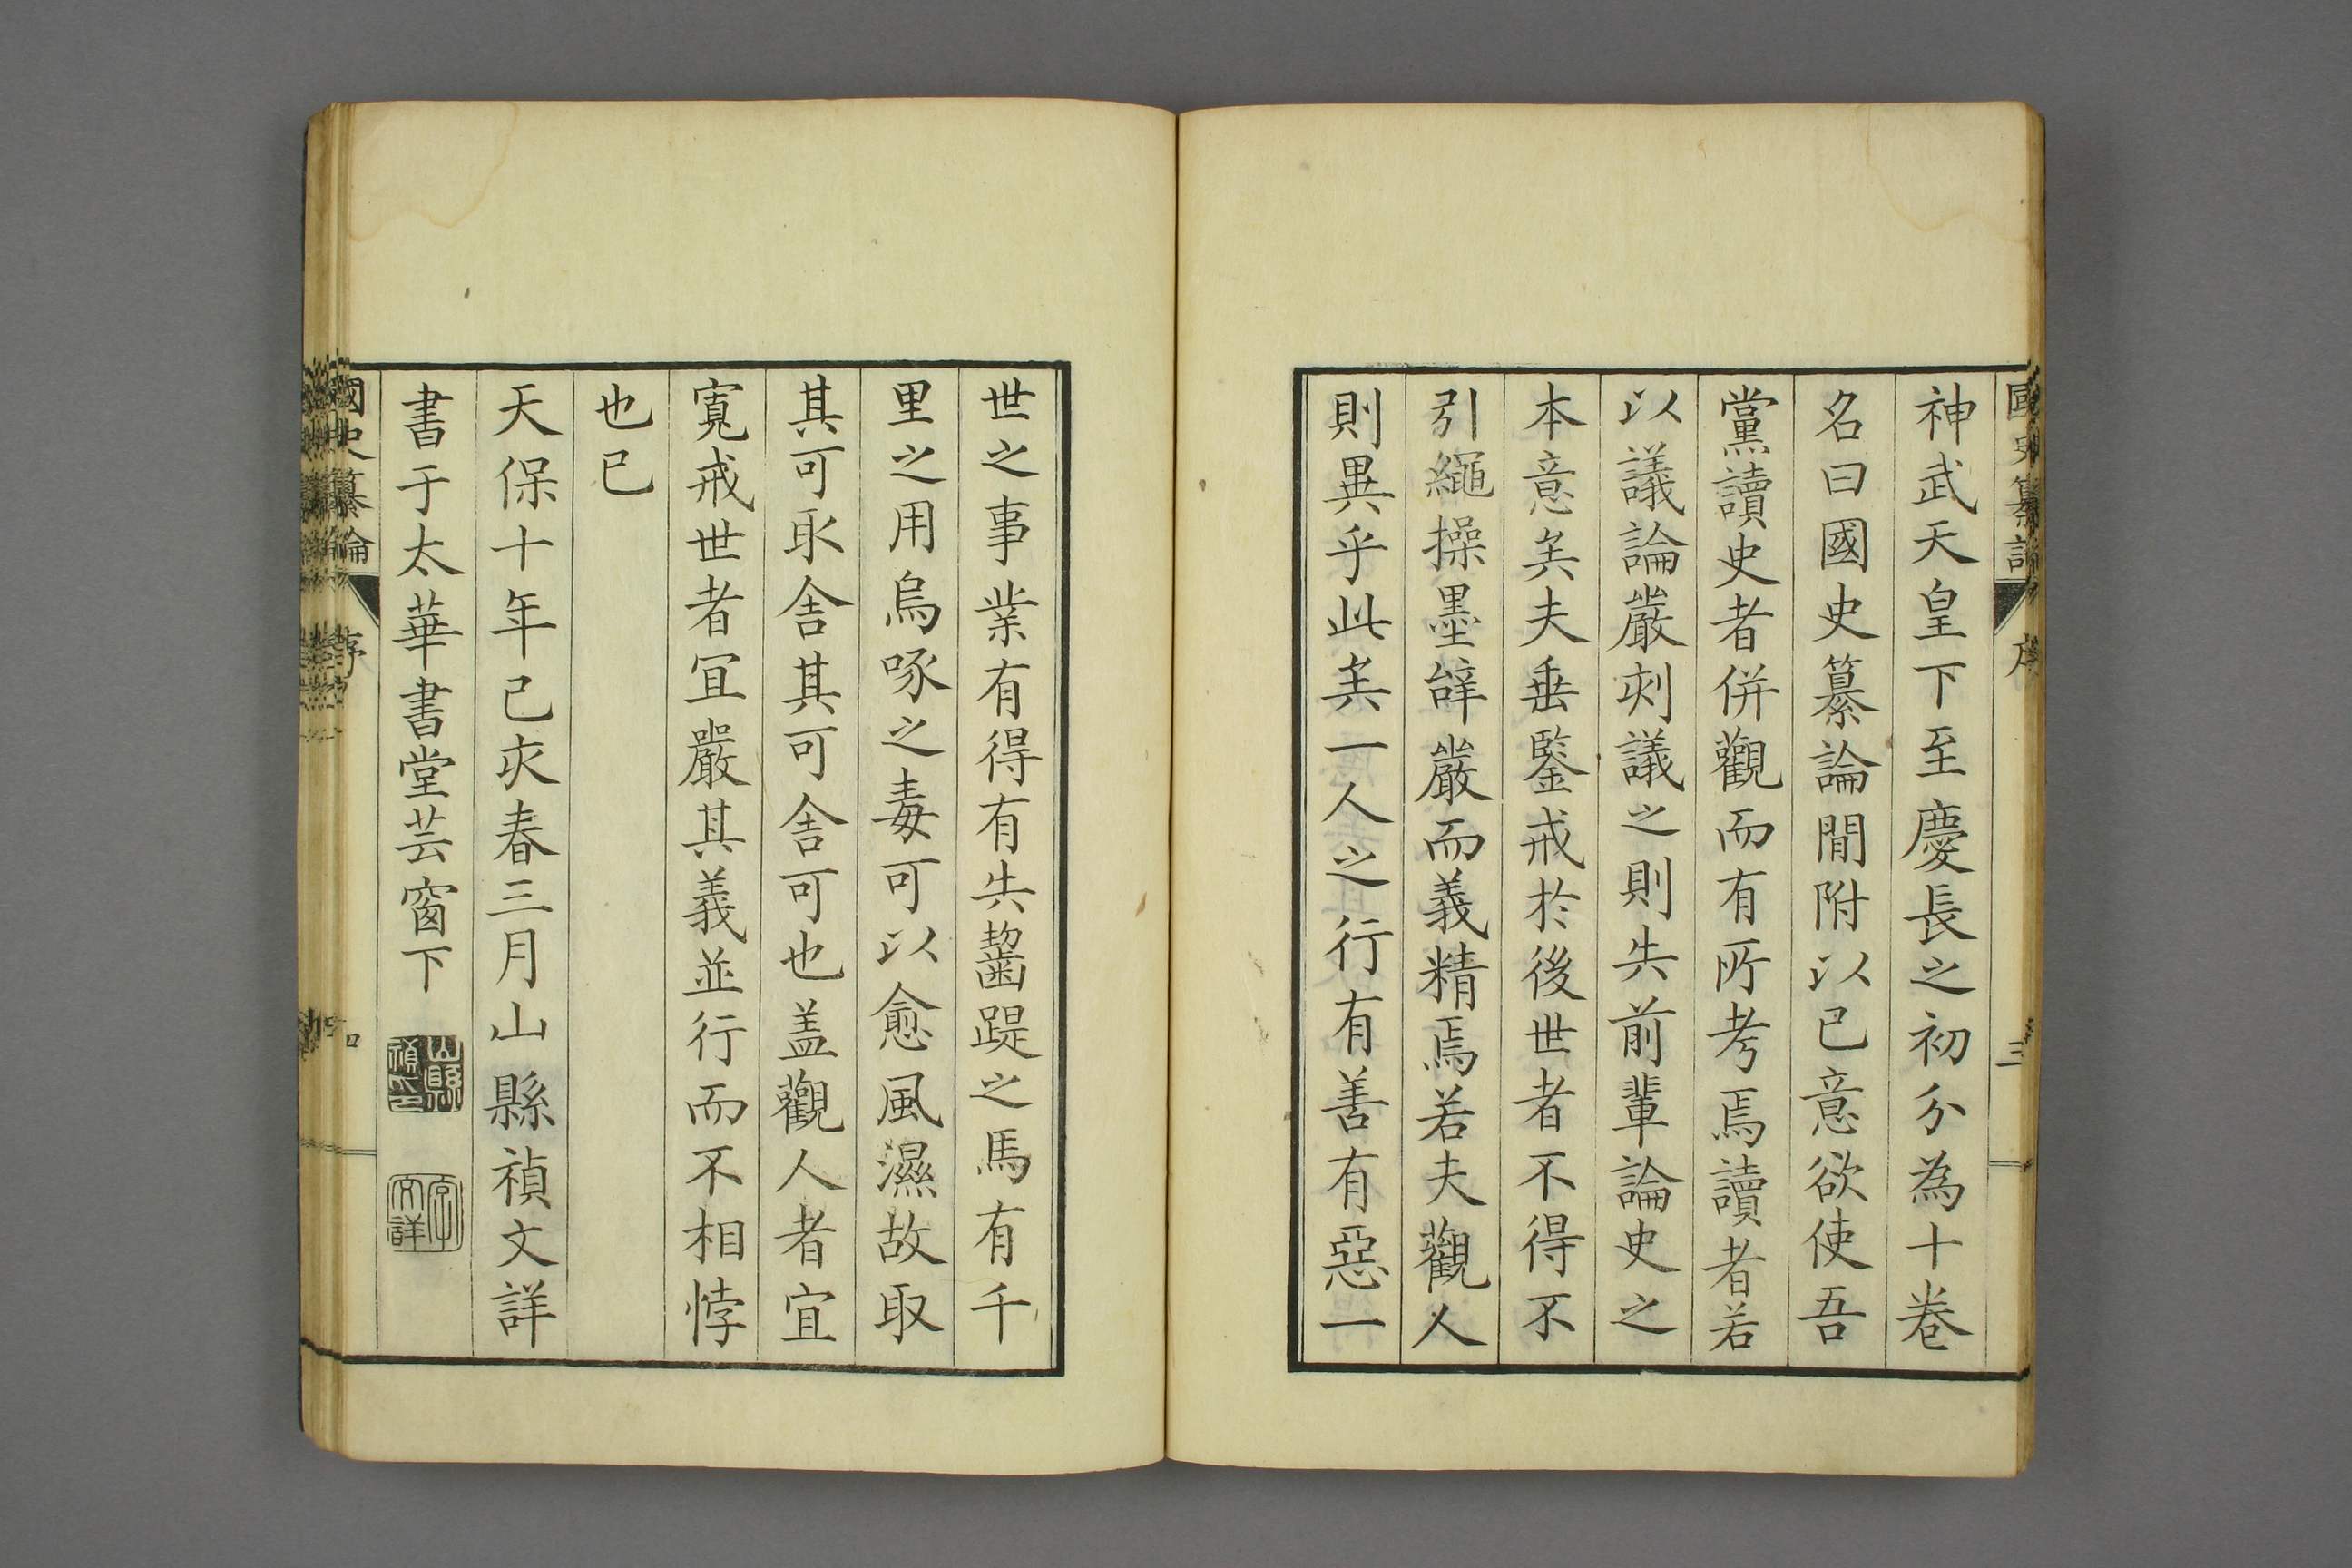 國史纂論
序
三
神武天皇下至慶長之初分為十卷
名曰國史纂論間附以已意欲使吾
黨讀史者併觀而有所考焉讀者若
以議論嚴刻議之則失前輩論史之
本意矣夫垂鑒戒於後世者不得不
引繩操墨辞嚴而義精焉若夫觀人
則異乎此矣一人之行有善有惡一
世之事業有得有失齧踶之馬有千
里之用烏喙之毒可以愈風濕故取
其可取舍其可舍可也盖觀人者宜
寬戒世者冝嚴其義並行而不相悖
也已
天保十年己亥春三月山縣禎文詳
書于太華書堂芸窗下
山縣禎印
字文詳
國史纂論
序